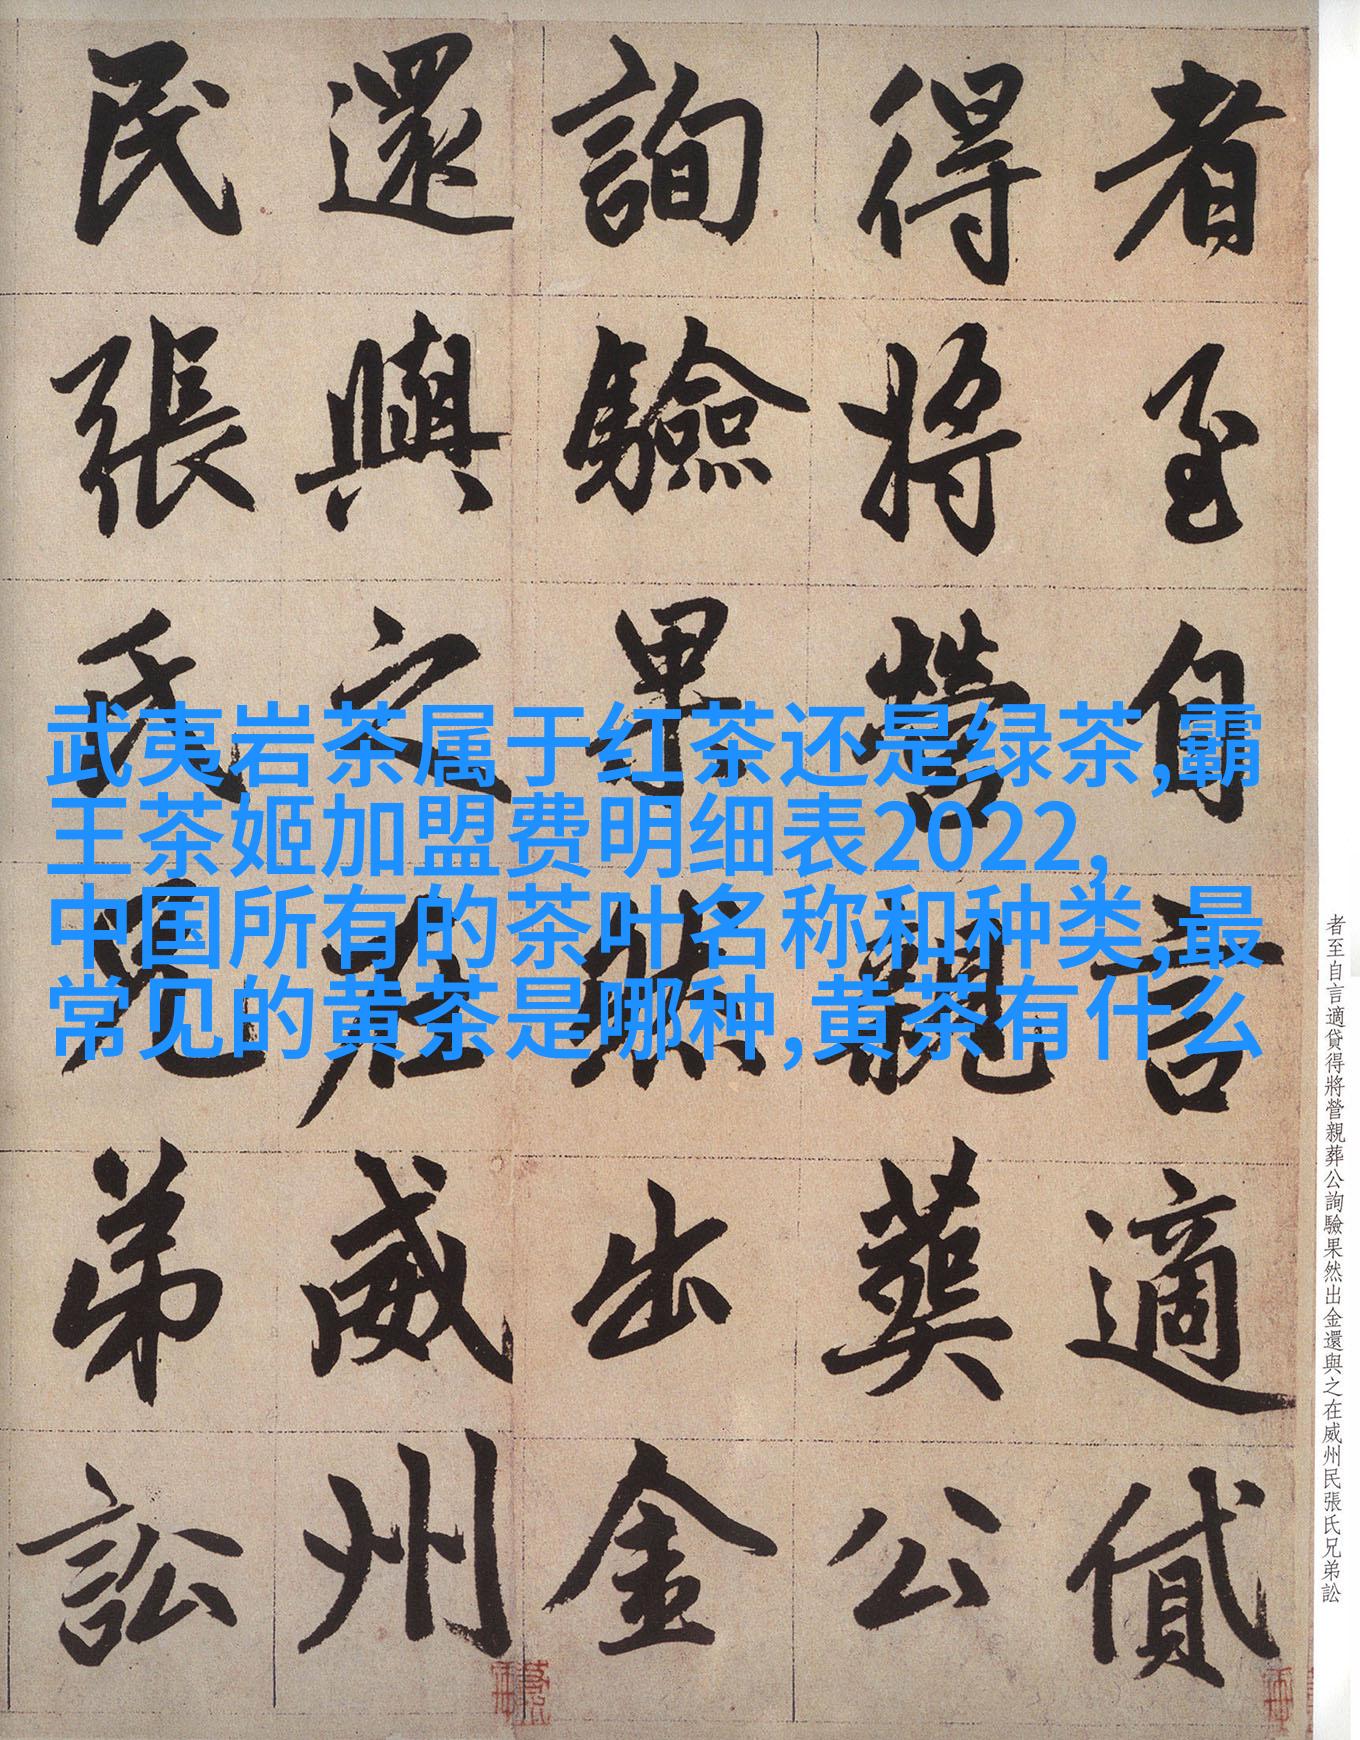 者至自言適貸
得將營親葬公
詢驗果然出金
還與之在威州
民張氏兄弟訟
武夷岩茶属于红茶还是绿茶,霸
王茶姬加盟费明细表2022,
中国所有的茶叶名称和种类,最
常见的黄茶是哪种,黄茶有什么
者至自言適貸得將營親葬公詢驗果然出金還與之在威州民張氏兄弟訟